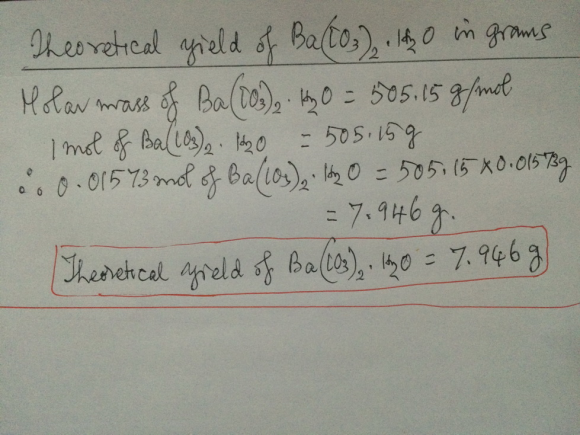 Theoretical yield of Ba(IO3)2.H2O in grams
Molar mass of Ba(IO3)2.H2O = 505.15 g/mol
1 mol of Ba(IO3)2.H2O = 505.15g
∴ 0.01573 mol of Ba(IO3)2.H2O = 505.15 x 0.01573g
= 7.946 g.
Theoretical yield of Ba(IO3)2.H2O = 7.946 g